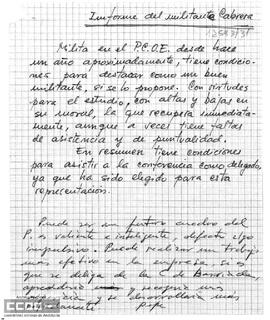 Informe del militante Cabrera
Milita en el P.C.O.E. desde hace
un año aproximadamente, tiene condicio-
nes para destacar como un buen
militante, si se lo propone. Con virtudes
para el estudio, con altas y bajas en
su moral, la que recupera inmediata-
mente, aunque a veces tiene faltas
de asistencia y de puntualidad.
En resumen tiene condiciones
para asistir a la conferencia como delegado,
ya que ha sido elegido para esta
representación.
Puede ser un futuro cuadro del
P. es valiente e inteligente, defecto algo
impulsivo. Puede realizar un trabajo
más efectivo en la empresa, si
que se deliga de la C de Barriadas,
y
y se desarrollaria más
Pepe
CCOO